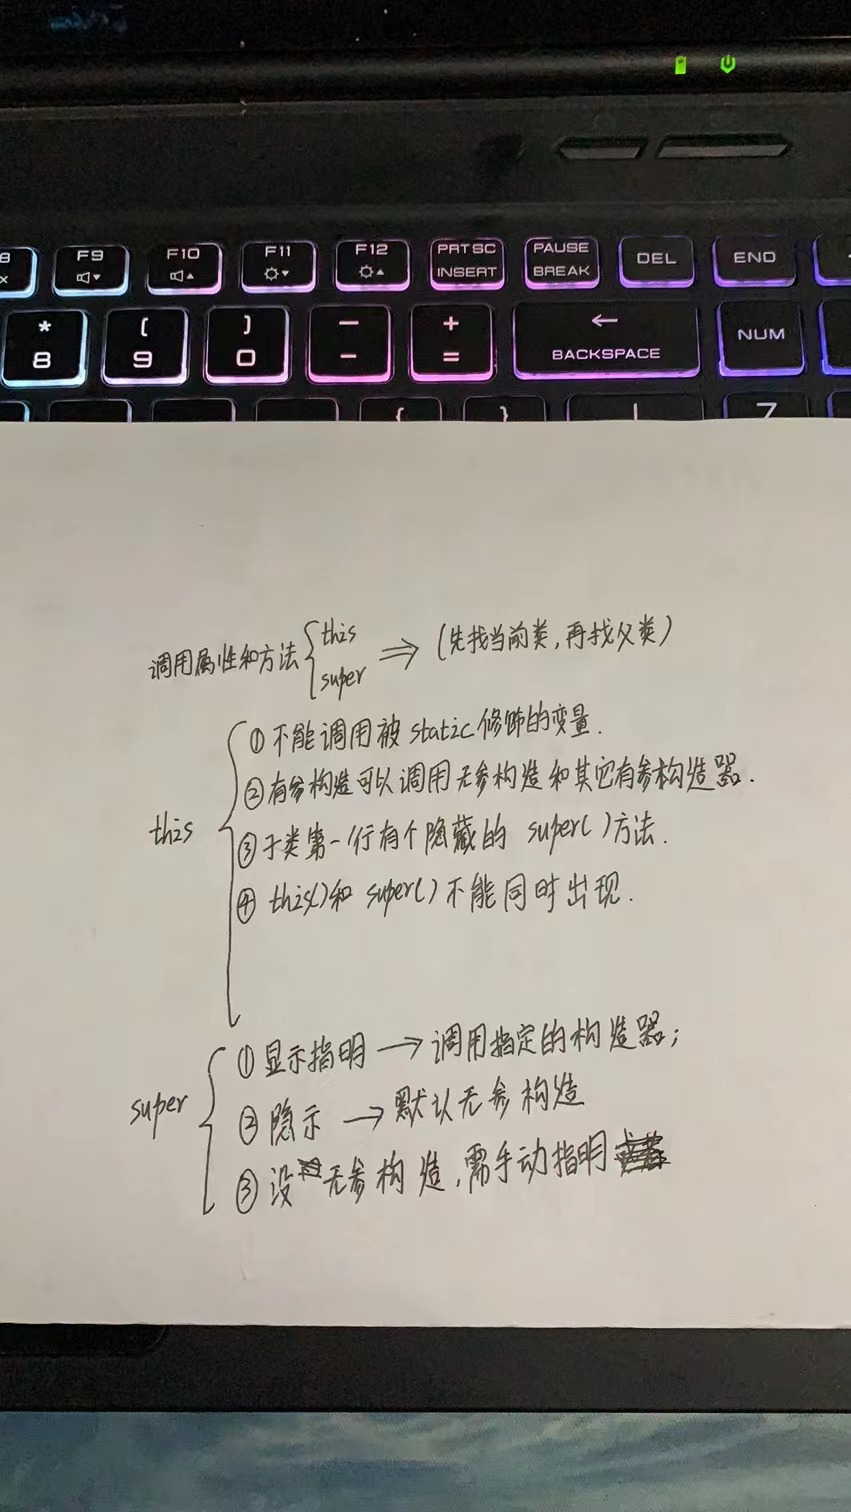 F9 F10 F11 F12 PRTSC INSERT PAUSE BREAK DEL END
* 8 ( 9 ) 0 — - + = ← BACKSPACE NUM
{ } | 7
调用属性和方法 { this super ⇒ (先找当前类,再找父类)
this
① 不能调用被 static 修饰的变量.
② 有参构造可以调用无参构造和其它有参构造器.
③ 子类第一行有个隐藏的 super( )方法.
④ this()和 super()不能同时出现.
super
① 显示指明 → 调用指定的构造器;
② 隐示 → 默认无参构造
③ 没无参构造,需手动指明